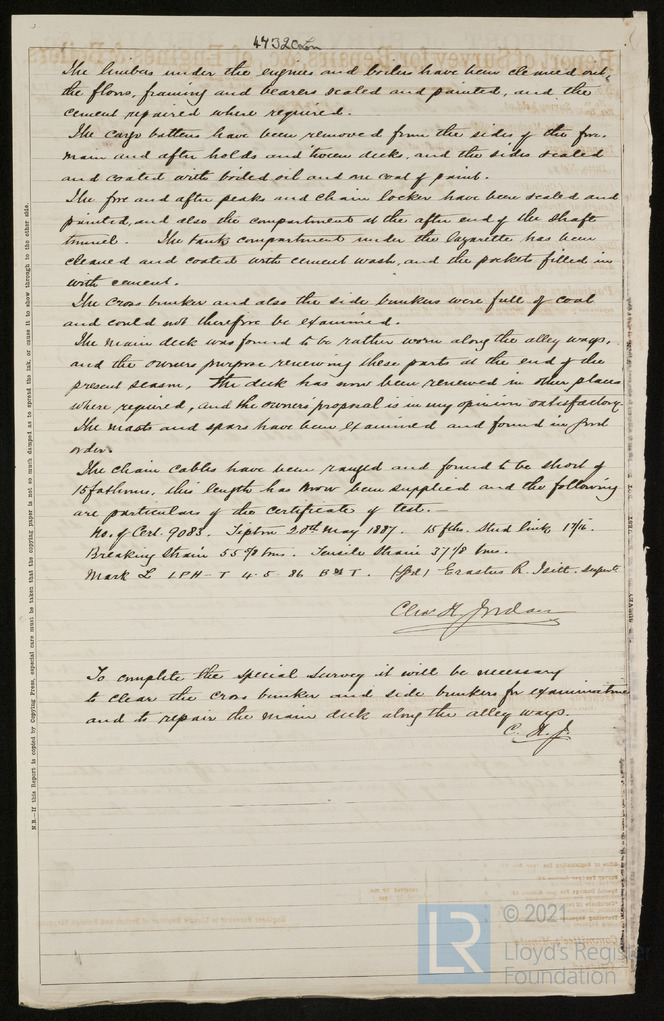 4732 Lon
The limbers under the engines and boilers have been cleaned out,
the floors, framing and bearers scaled and painted, and the
cement repaired where required.
The cargo battens have been removed from the sides of the fore
main and after holds and 'tween decks, and the sides scaled
and coated with boiled oil and one coat of paint.
The fore and after peaks and chain locker have been scaled and
painted, and also the compartment at the after end of the shaft
tunnel. The tank compartment under the lazarette has been
cleaned and coated with cement wash, and the pockets filled in
with cement.
The cross bunker and also the side bunkers were full of coal
and could not therefore be examined.
The main deck was found to be rather worn along the alley ways,
and the owners purpose renewing these parts at the end of the
present season, The deck has now been renewed in other places
where required, and the owners' proposal is in my opinion satisfactory.
The masts and spars have been examined and found in good
order.
The chain cables have been ranged and found to be short of
15 fathoms, this length has now been supplied and the following
are particulars of the certificate of test.—
No. of Cert. 9083. Tipton 20th May 1887. 15 fths. Stud link
Breaking Strain 55 7/8 tons. Tensile Strain 37 7/8 tons.
Mark L LPH-T 4.5.86 T. (sgd) Erastus R. Isitt. Supert.
Chas H. Jordan
To complete the special survey it will be necessary
to clear the cross bunker and side bunkers for examination
and to repair the main deck along the alley ways.
C. H. J.
N.B.—If this Report is copied by Copying Press, especial care must be taken that the copying paper is not so much damped as to spread the ink, or cause it to show through to the other side.
LR
© 2021
Lloyd's Register
Foundation